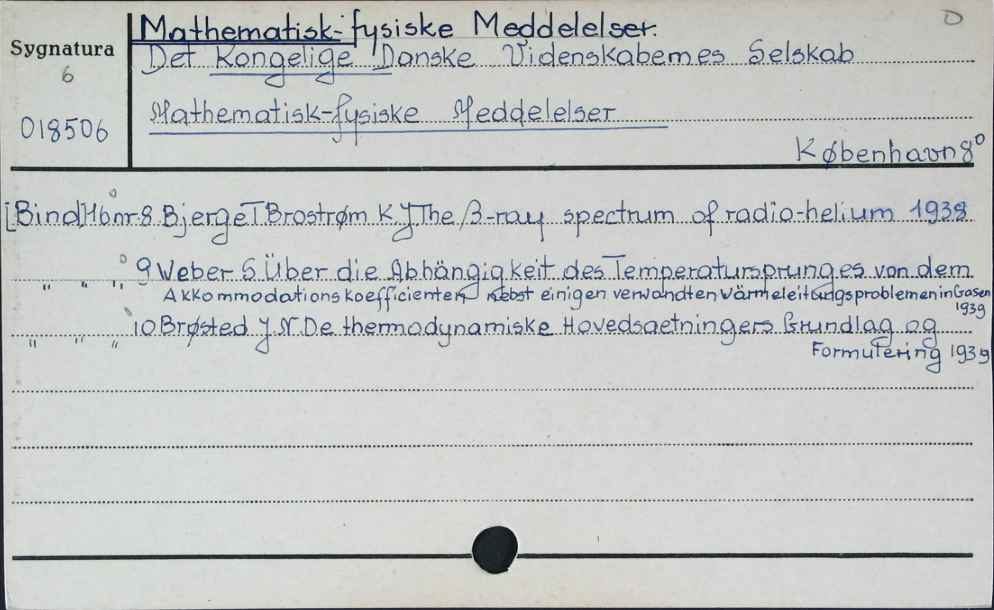 D
Mathematisk-fysiske Meddelelser.
Sygnatura
6
Det Kongelige Danske Videnskabernes Selskab
018506
Mathematisk-fysiske Meddelelser
København 8°
[Bind] 16 nr. 8 Bjerge T Brostrøm K. J The β-ray spectrum of radio-helium 1938
" " " 9 Weber S. Über die Abhängigkeit des Temperatursprunges von dem
Akkommodationskoefficienten nebst einigen verwandten Wärmeleitungsproblemen in Gasen
1939
" " " 10 Brøsted J. N. De thermodynamiske Hovedsaetningers Grundlag og
Formulering 1939